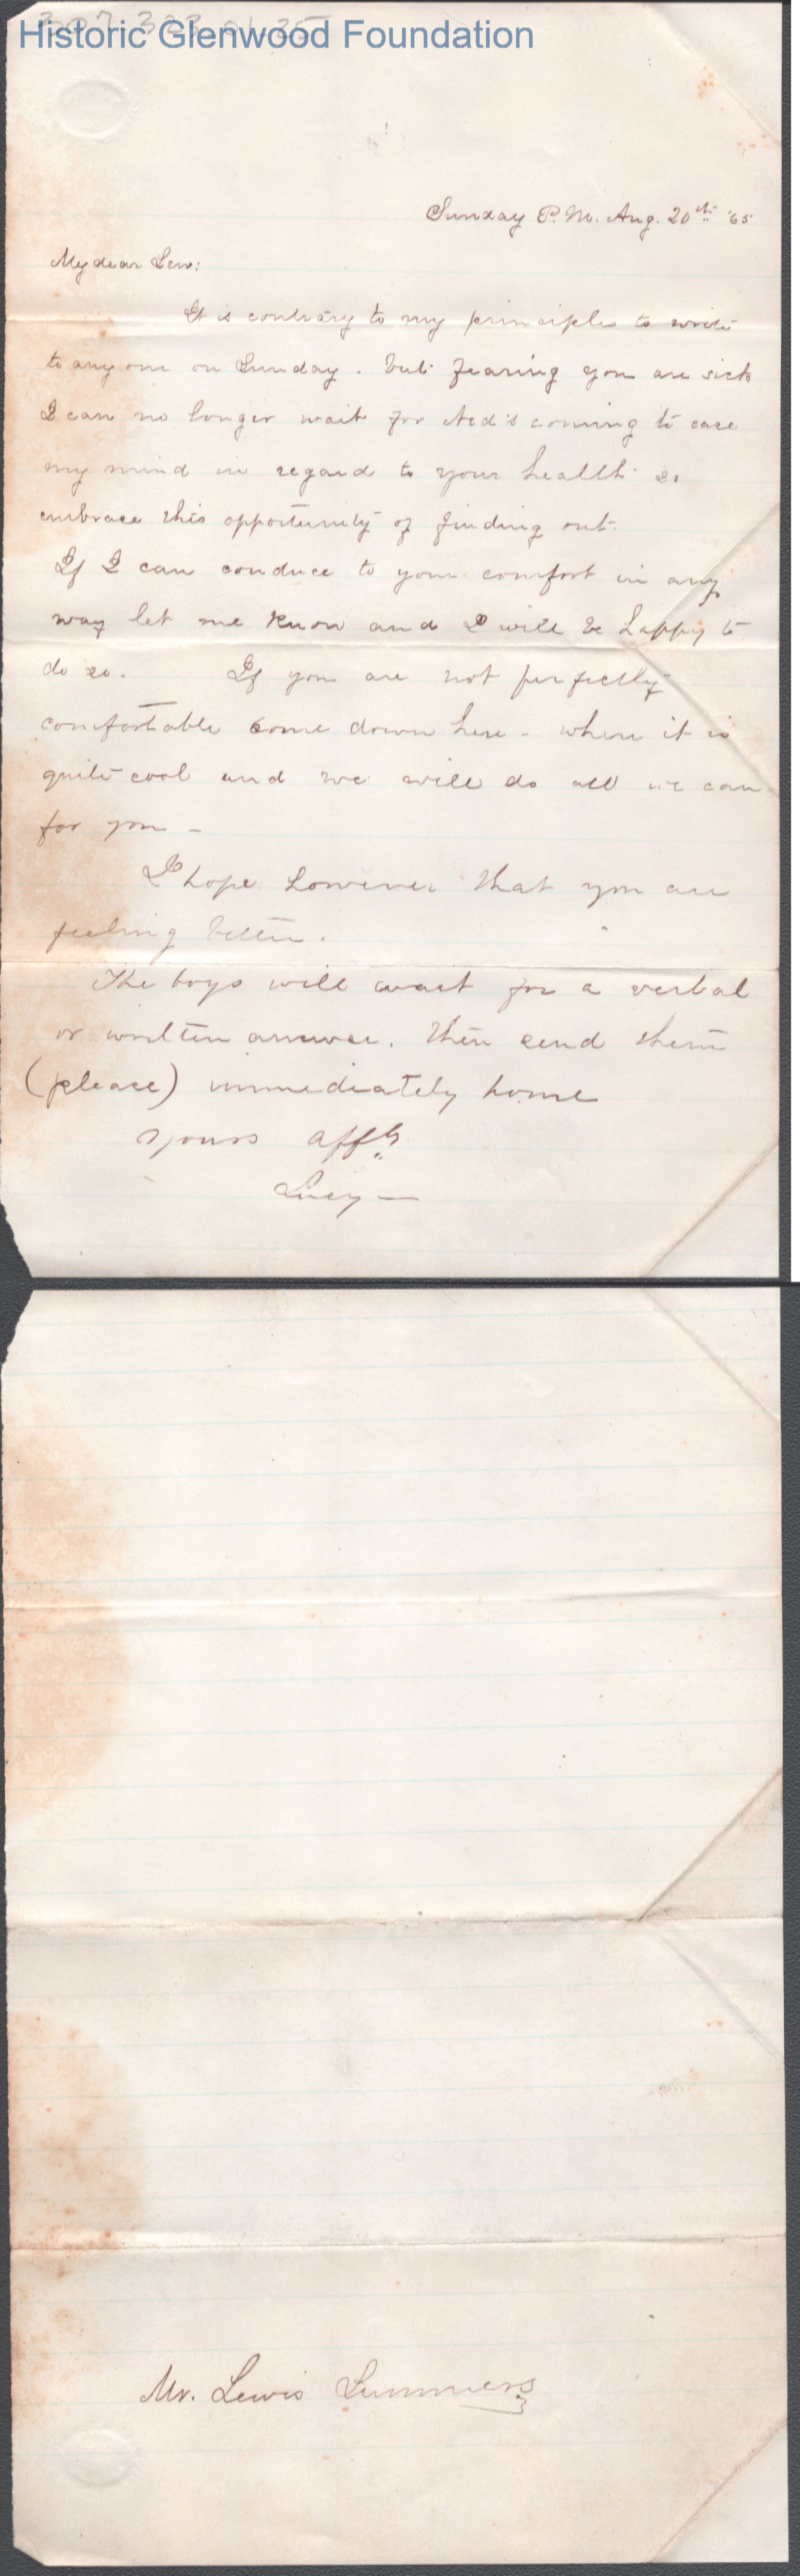 307.323.01.25
Historic Glenwood Foundation
Sunday P.M. Aug. 20th '65
My dear Lew:
It is contrary to my principles to write
to any one on Sunday. but fearing you are sick
I can no longer wait for Ned's coming to ease
my mind in regard to your health so
embrace this opportunity of finding out.
If I can conduce to your comfort in any
way let me know and I will be happy to
do so. If you are not perfectly
comfortable come down here - where it is
quite cool and we will do all we can
for you -
I hope however that you are
feeling better.
The boys will wait for a verbal
or written answer. then send them
(please) immediately home
Yours affly
Lucy —
Mr. Lewis Summers